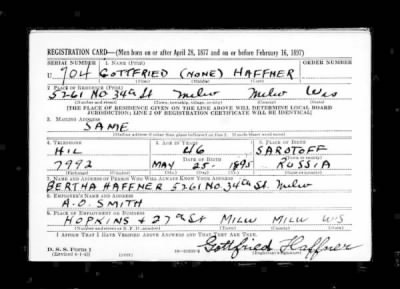 REGISTRATION CARD—(Men born on or after April 28, 1877 and on or before February 16, 1897)
SERIAL NUMBER 1. NAME (Print) ORDER NUMBER
U 704 GOTTFRIED (NONE) HAFFNER
2. PLACE OF RESIDENCE (Print)
5261 NO. 34th St Milw Milw Wis
(Number and street) (Town, township, village, or city) (County) (State)
[THE PLACE OF RESIDENCE GIVEN ON THE LINE ABOVE WILL DETERMINE LOCAL BOARD
JURISDICTION; LINE 2 OF REGISTRATION CERTIFICATE WILL BE IDENTICAL]
3. MAILING ADDRESS
SAME
[Mailing address if other than place indicated on line 2. If same insert word same]
4. TELEPHONE 5. AGE IN YEARS 6. PLACE OF BIRTH
HIL 46 SAROTOFF
DATE OF BIRTH
7992 MAY 25 1895 RUSSIA
7. NAME AND ADDRESS OF PERSON WHO WILL ALWAYS KNOW YOUR ADDRESS
BERTHA HAFFNER 5261 NO. 34th St. Milw
8. EMPLOYER'S NAME AND ADDRESS
A.O. SMITH
9. PLACE OF EMPLOYMENT OR BUSINESS
HOPKINS + 27th St MILW MILW WIS
(Number and street or R. F. D. number) (Town) (County) (State)
I AFFIRM THAT I HAVE VERIFIED ABOVE ANSWERS AND THAT THEY ARE TRUE.
D. S. S. Form 1
Gottfried Haffner